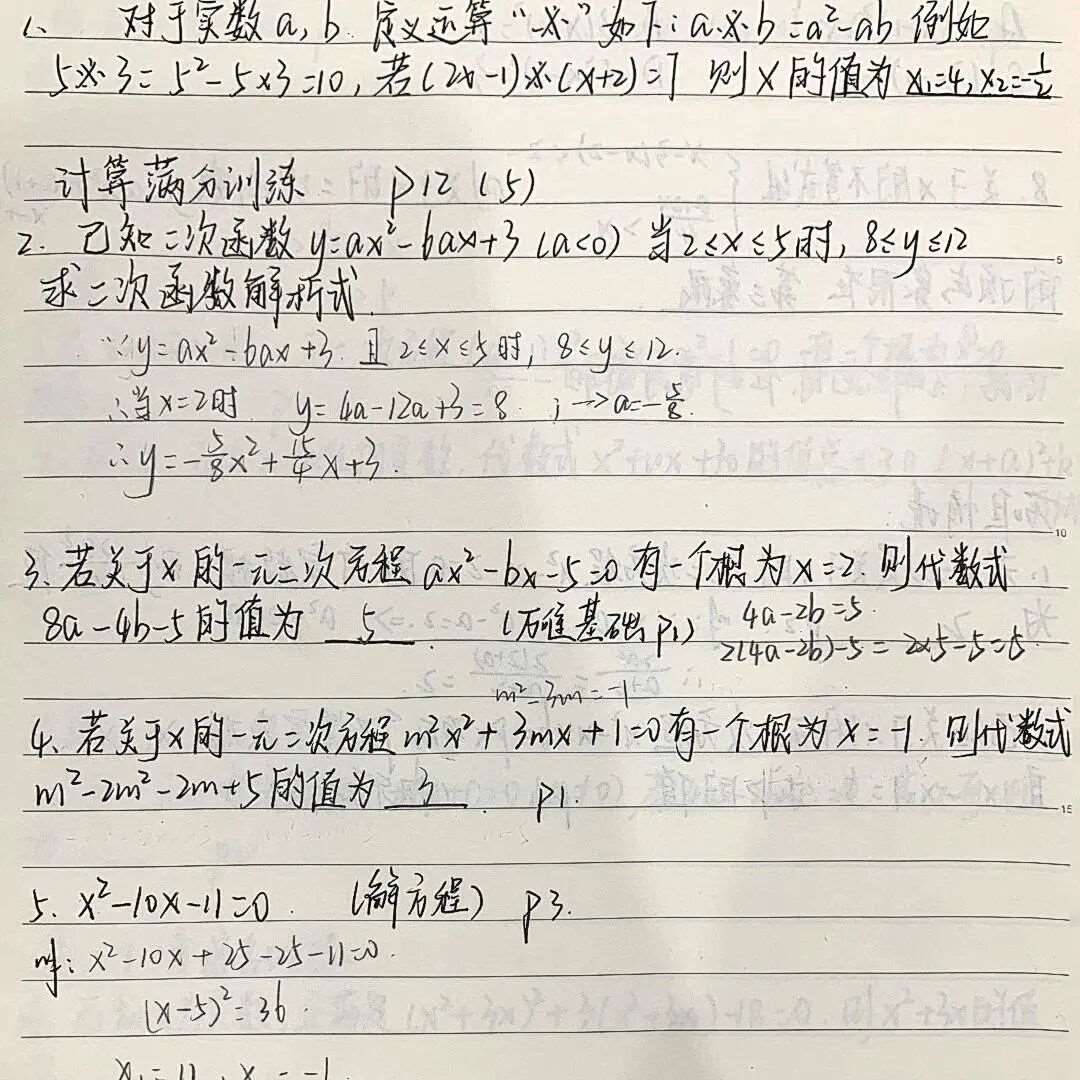 1. 对于实数a,b.定义运算“※”如下:a※b=a²-ab 例如
5※3=5²-5×3=10,若(2x-1)※(x+2)=7 则x的值为 x₁=4,x₂=-1/2
计算满分训练 P12 (5)
2. 已知二次函数y=ax²-6ax+3(a<0) 当2≤x≤5时,8≤y≤12
求二次函数解析式.
∵y=ax²-6ax+3.且2≤x≤5时,8≤y≤12.
∴当x=2时 y=4a-12a+3=8 ; →a=-5/8.
∴y=-5/8x²+15/4x+3.
3.若关于x的一元二次方程ax²-bx-5=0有一个根为x=2.则代数式
4a-2b=5.
8a-4b-5的值为 5 (万唯基础,P1)
2(4a-2b)-5=2×5-5=5
m²-3m=-1
4、若关于x的一元二次方程m²x²+3mx+1=0有一个根为x=-1.则代数式
m²-2m²-2m+5的值为 3 P1.
5. x²-10x-11=0. (解方程) P3.
解:x²-10x+25-25-11=0.
(x-5)²=36.
x₁=11,x =-1.
5
10
15